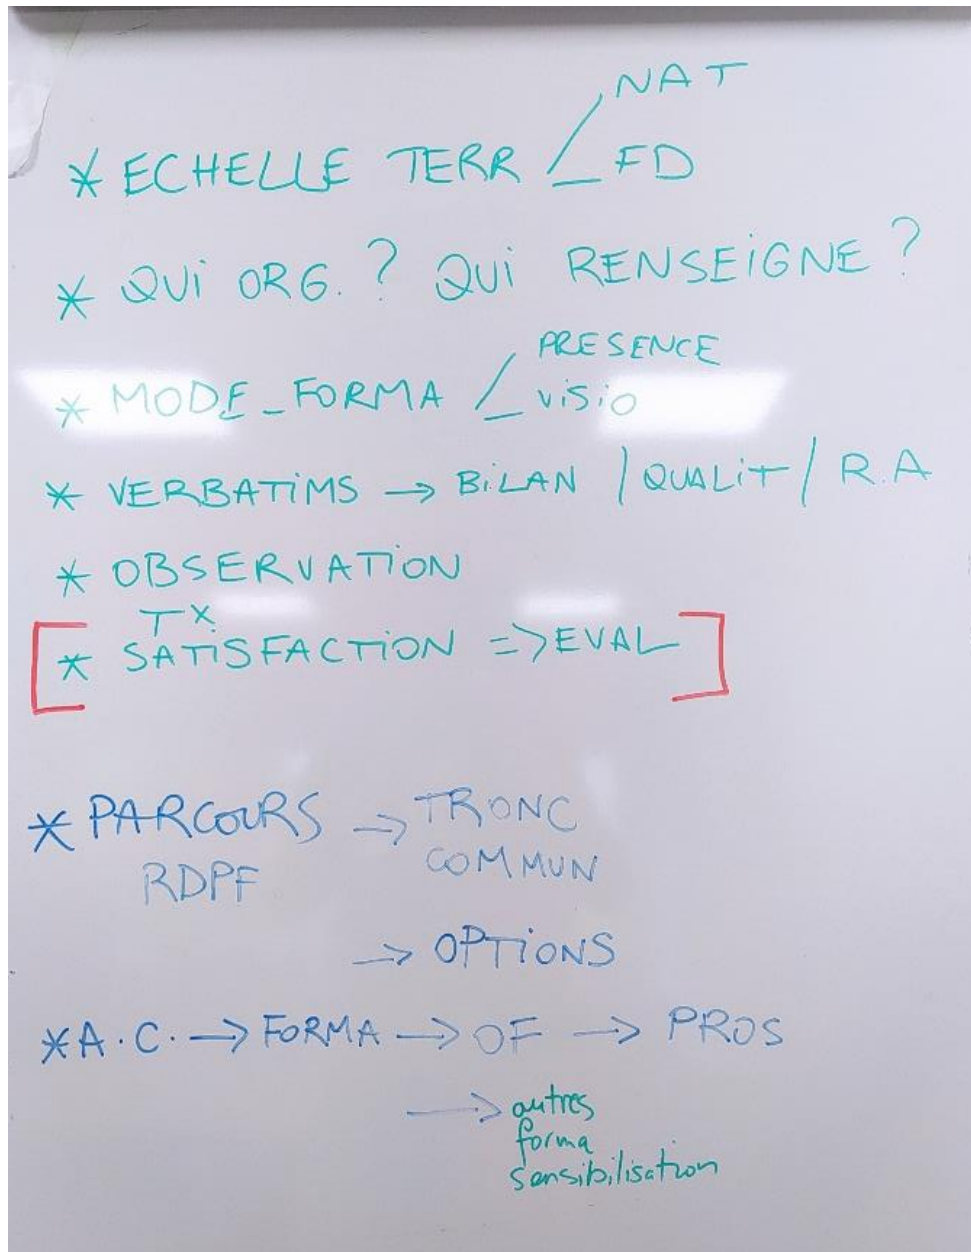 NAT
* ECHELLE TERR / _ FD
* QUi ORG. ? QUi RENSEiGNE ?
PRESENCE
* MODE_FORMA / _ ViSiO
* VERBATiMS → BiLAN / QUALiT / R.A
* OBSERVATiON
TX.
[* SATiSFACTiON => EVAL]
* PARCOURS → TRONC
RDPF COMMUN
→ OPTiONS
* A.C. → FORMA → OF → PROS
→ autres
forma
sensibilisation